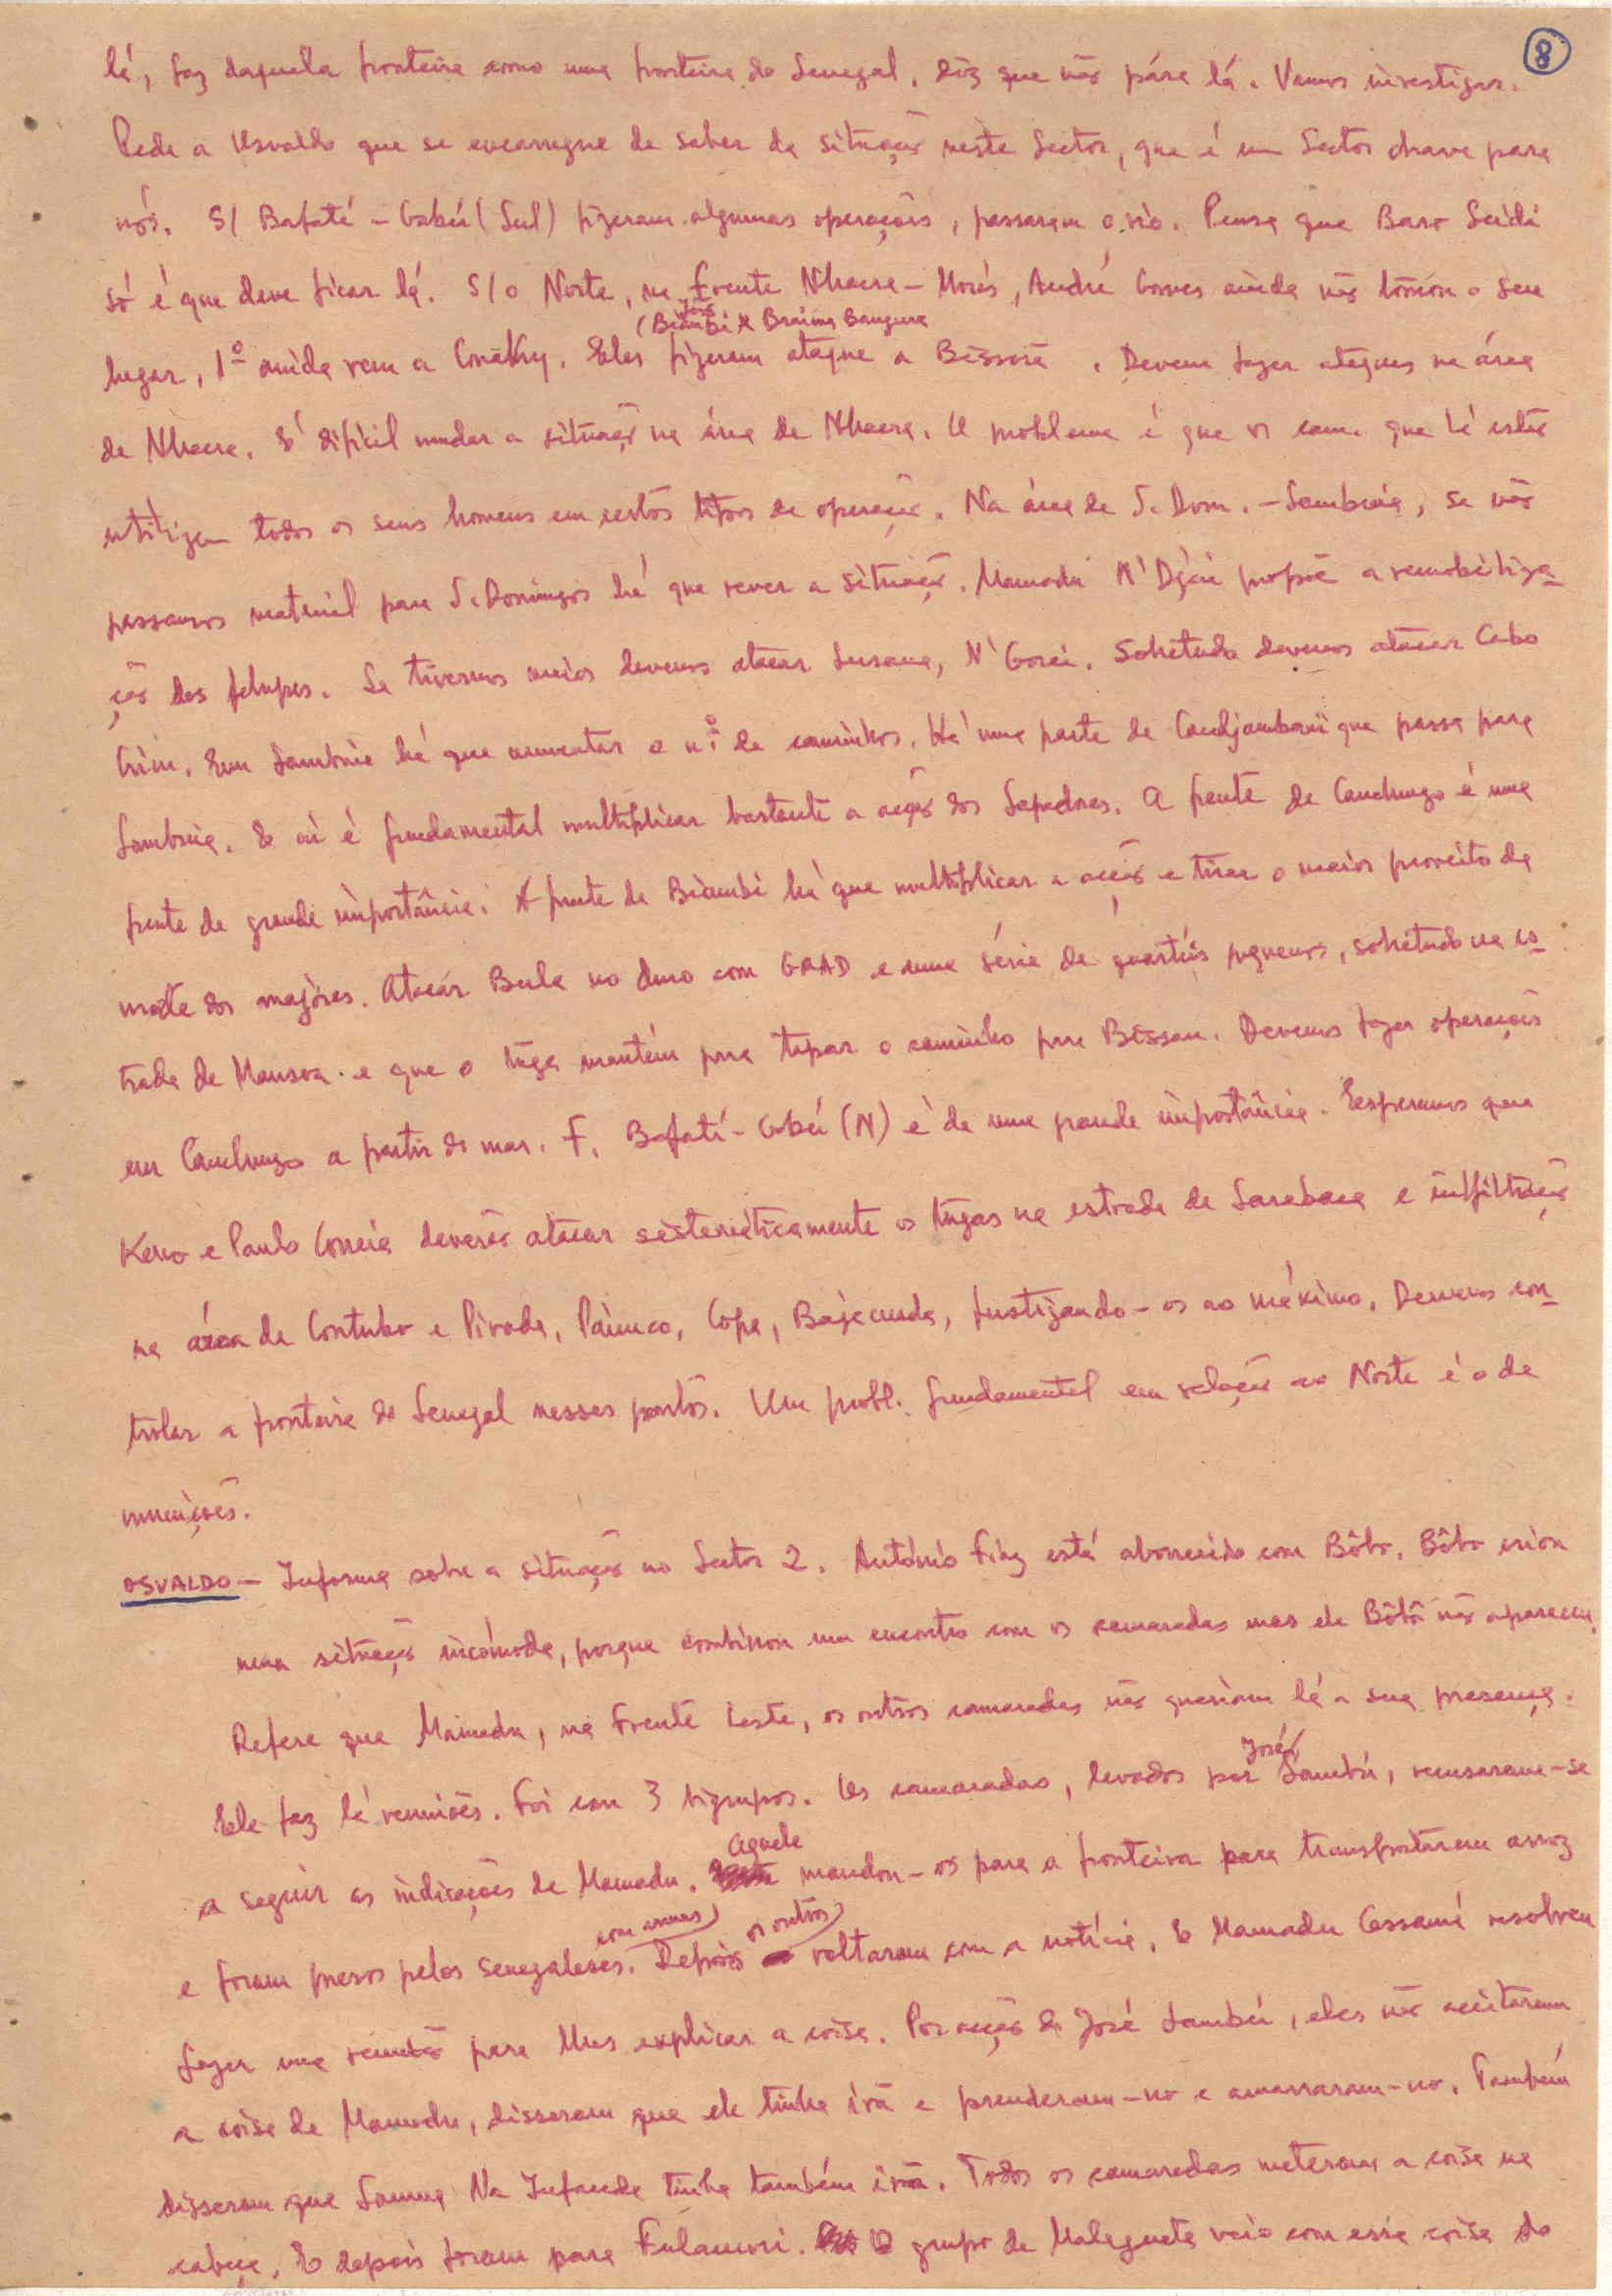 8
lá, faz daquela fronteira como uma fronteira do Senegal. Diz que não pára lá. Vamos investigar.
Pede a Osvaldo que se encarregue de saber da situação neste Sector, que é um Sector chave para
nós. S/ Bafatá - Gabú (Sul) fizeram algumas operações, passaram o rio. Pensa que Baro Seidi
só é que deve ficar lá. S/ o Norte, na frente Nhacra - Morés, André Gomes ainda não tomou o seu
(Biambi e Braima Bangura
lugar, 1º ainda vem a Conakry. Eles fizeram ataque a Bissorã. Devem fazer ataques na área
de Nhacra. É difícil mudar a situação na área de Nhacra. O problema é que os cam. que lá estão
utilizam todos os seus homens em certos tipos de operação. Na área de S. Dom. - Sambuiá, se não
passamos material para S. Domingos há que rever a situação. Mamadu N'Djai propõe a remobiliza-
ção dos felupes. Se tivermos meios devemos atacar Susana, N'Gorei. Sobretudo devemos atacar Cabo
. Em Sambuiá há que aumentar o nº de caminhos. Há uma parte de Candjambari que passa para
Sambuiá. E aí é fundamental multiplicar bastante a acção dos Sapadores. A frente de Canchungo é uma
frente de grande importância. A frente de Biambi há que multiplicar a acção e tirar o maior proveito da
morte dos majores. Atacar Bula no duro com GRAD e uma série de quartéis pequenos, sobretudo na es-
trada de Mansoa e que o tuga mantém para tapar o caminho para Bissau. Devemos fazer operações
em Canchungo a partir do mar. F. Bafatá - Gabú (N) é de uma grande importância. Esperamos que
Keno e Paulo Correia deverão atacar sistemàticamente os tugas na estrada de Sarebaca e infiltração
na área de Contubo e Pirada, Paiunco, Copa, Bajacunda, fustigando-os ao máximo. Devemos con-
trolar a fronteira do Senegal nesses pontos. Um probl. fundamental em relação ao Norte é o de
munições.
OSVALDO - Informa sobre a situação no Sector 2. António Fiaz está aborrecido com Bôbo. Bôbo criou
uma situação incómoda, porque combinou um encontro com os camaradas mas ele Bôbô não apareceu.
Refere que Mamadu, na Frente Leste, os outros camaradas não queriam lá a sua presença.
José
Ele faz lá reuniões. Foi com 3 bigrupos. Os camaradas, levados por Sambú, recusaram-se
Aquele
a seguir as indicações de Mamadu. mandou-os para a fronteira para transportarem arroz
com armas) os outros)
e foram presos pelos senegaleses. Depois voltaram com a notícia. E Mamadu Cassamá resolveu
fazer uma reunião para lhes explicar a coisa. Por acção de José Sambú, eles não aceitaram
a coisa de Mamadu, disseram que ele tinha irã e prenderam-no e amarraram-no. Também
disseram que Sanna Na Infanda tinha também irã. Todos os camaradas meteram a coisa na
cabeça. E depois foram para Fulamori. O grupo de Malagueta veio com essa coisa do